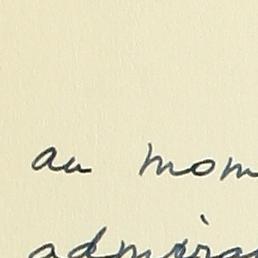 au mom
admira